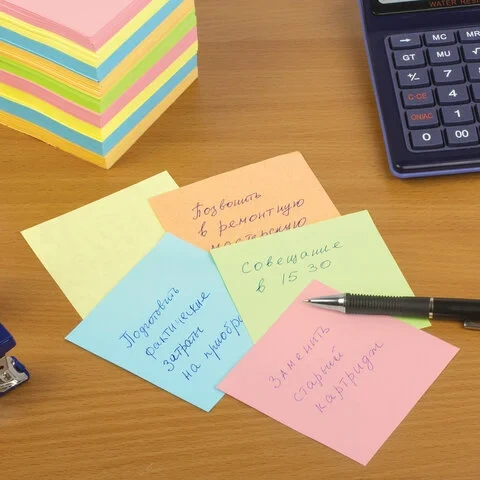 WATER RESI
→ MC MR
GT MU √
+/- 7 8
C-CE 4 5
ON/AC 1 2
0 00
Позвонить
в ремонтную
мастерскую
Совещание
в 15 30
Подготовить
фактические
затраты
на приобр
Заменить
старый
картридж